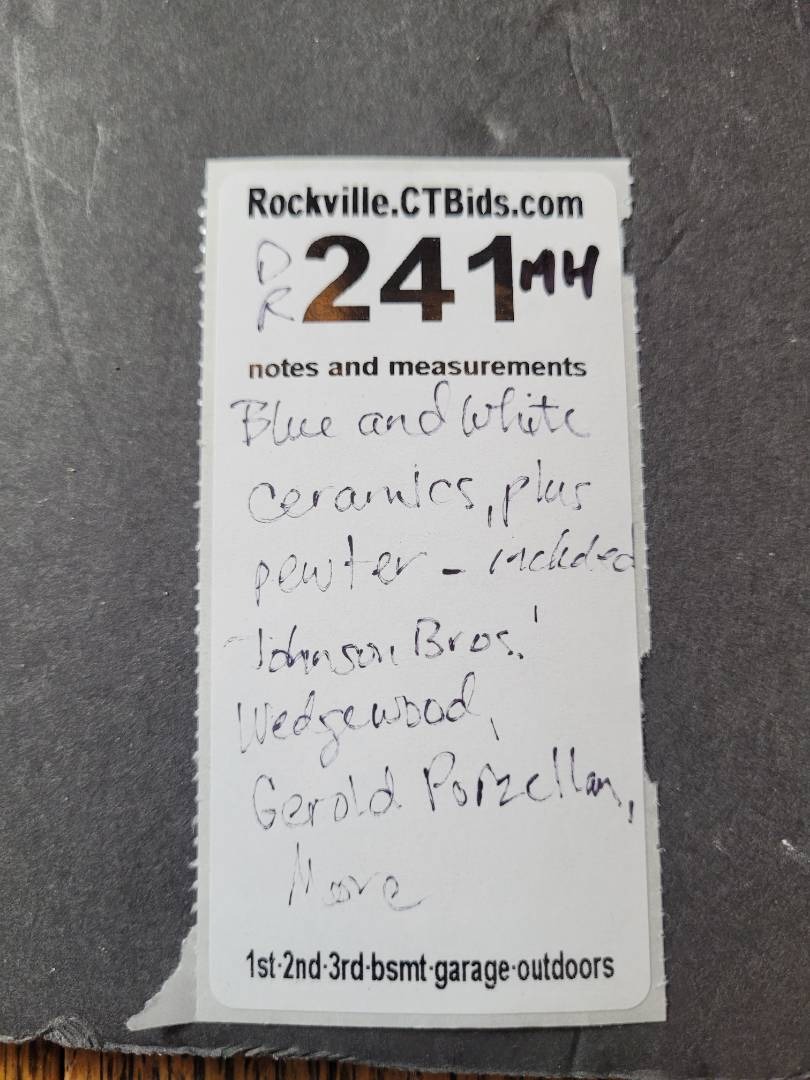 Rockville.CTBids.com
DR 241 MH
notes and measurements
Blue and White
ceramics, plus
pewter - included
Johnson Bros.,
Wedgewood,
Gerold Porzellan,
More
1st·2nd·3rd·bsmt·garage·outdoors